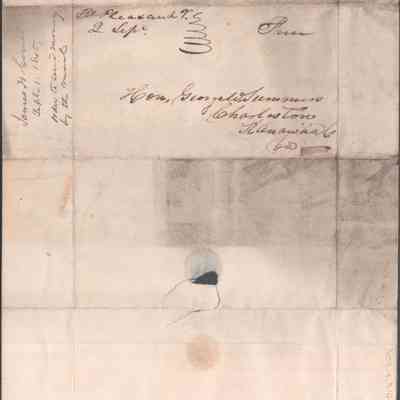 Pt Pleasant Va
2 Sepr
Free
Hon, George W Summers
Charleston
Kanawha C
Va
James H
Sept. 1. 1845
to send money
by the mail